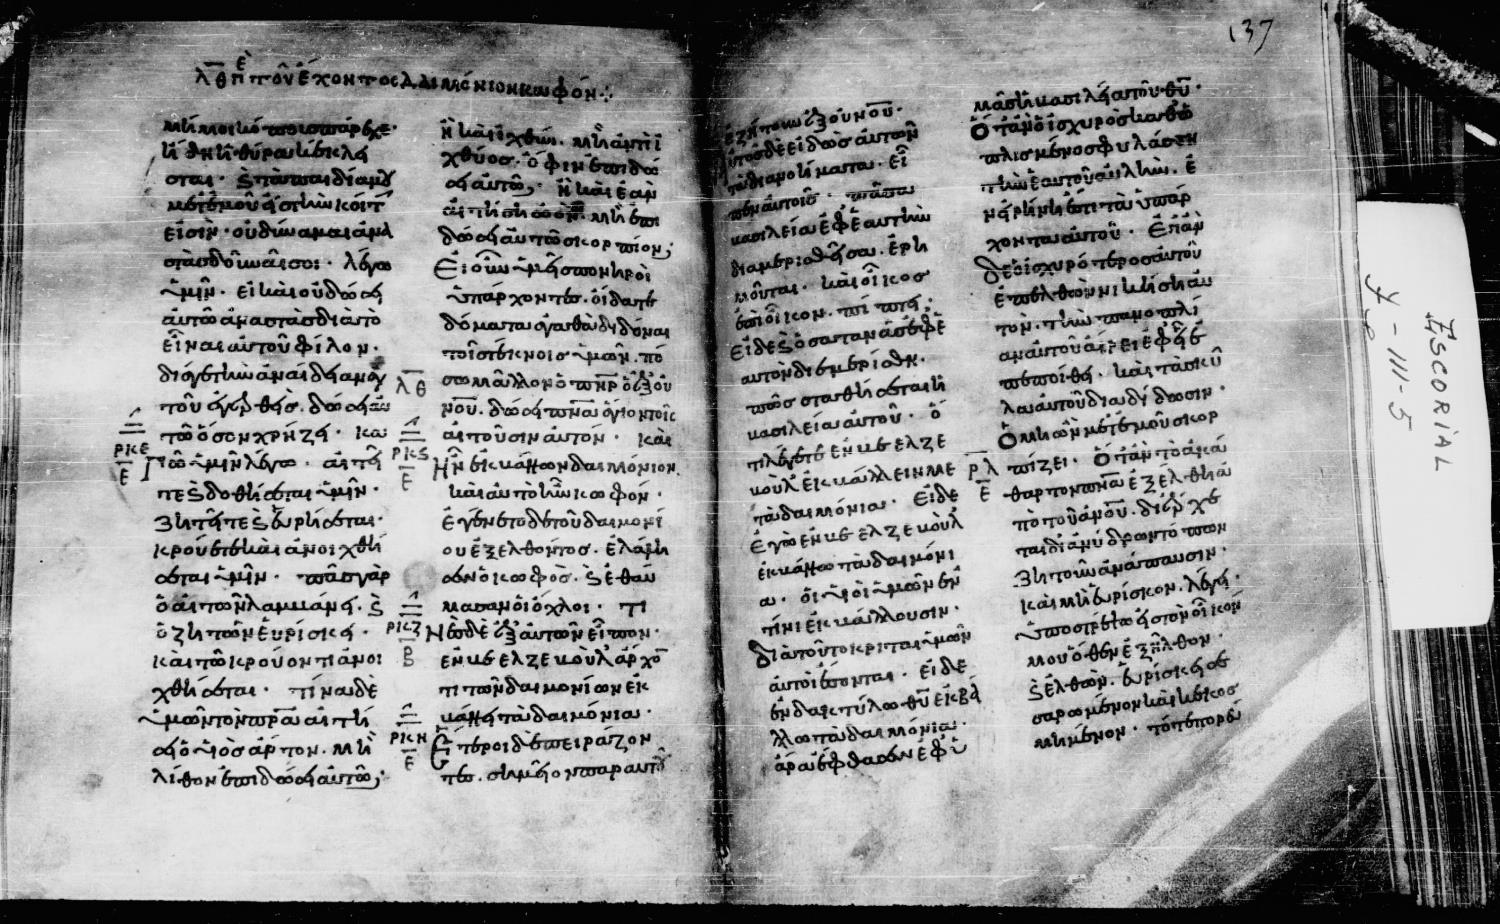 λθ πε τοῦ ἔχοντος δαιμόνιον κωφόν
μή μοι κόπους πάρεχε·
ἤδη ἡ θύρα κέκλει
σται· καὶ τὰ παιδία μου
μετ' ἐμοῦ εἰς τὴν κοίτ
εἰσιν· οὐ δύναμαι ἀνα
στὰς δοῦναί σοι· λέγω
ὑμῖν· εἰ καὶ οὐ δώσει
αὐτῶ ἀναστὰς διὰ τὸ
εἶναι αὐτοῦ φίλον·
διά γε τὴν ἀναίδειαν
τοῦ ἐγερθεὶς· δώσει αὐ
τῶ ὅσον χρήζει· κα
ΡΚΕ Ε
γὼ ὑμῖν λέγω· αἰτεῖ
τε καὶ δοθήσεται ὑμῖν·
ζητεῖτε καὶ εὑρήσεται·
κρούετε καὶ ἀνοιχθή
σεται ὑμῖν· πᾶς γὰρ
ὁ αἰτῶν λαμβάνει· καὶ
ὁ ζητῶν εὑρίσκει·
καὶ τῶ κρούοντι ἀνοι
χθήσεται· τίνα δὲ
ὑμῶν τὸν πρα αἰτή
σει ὁ υἱὸς ἄρτον· μὴ
λίθον ἐπιδώσει αὐτῶ;
ἢ καὶ ἰχθύν· μὴ ἀντὶ ἰ
χθύος· ὄφιν ἐπιδώ
σει αὐτῶ; ἢ καὶ ἐὰν
αἰτήσῃ ὠόν· μὴ ἐπι
δώσει αὐτῶ σκορπίον;
Εἰ οὖν ὑμεῖς πονηροὶ
ὑπάρχοντες· οἴδατε
δόματα ἀγαθὰ διδόναι
τοῖς τέκνοις ὑμῶν· πό
σω μᾶλλον ὁ πηρ ὁ ἐξ οὐ
λθ
νοῦ· δώσει πνα ἅγιον τοῖς
αἰτοῦσιν αὐτόν· καὶ
ΡΚϚ Ε
ἦν ἐκβάλλων δαιμόνιον·
καὶ αὐτὸ ἦν κωφόν·
ἐγένετο δὲ τοῦ δαιμονί
ου ἐξελθόντος· ἐλάλη
σεν ὁ κωφὸς· καὶ ἐθαύ
μασαν οἱ ὄχλοι· τι
ΡΚΖ Β
νὲς δὲ ἐξ αὐτῶν εἶπον·
ἐν βεελζεβοὺλ ἄρχο
τι τῶν δαιμονίων ἐκ
βάλλει τὰ δαιμόνια·
ΡΚΗ Ε
ἕτεροι δὲ πειράζον
τες· σημεῖον παρ αὐτοῦ
137
ἐζήτουν ἐξ οὐνοῦ·
αὐτὸς δὲ εἰδὼς αὐτῶν
τὰ διανοήματα· εἶ
πεν αὐτοῖς· πᾶσα
βασιλεία ἐφ' ἑαυτὴν
διαμερισθεῖσα· ἐρη
μοῦται· καὶ οἶκος
ἐπὶ οἶκον· πίπτει;
εἰ δὲ καὶ ὁ σατανᾶς ἐφ' ἑ
αυτὸν διεμερίσθη·
πῶς σταθήσεται ἡ
βασιλεία αὐτοῦ· ὅ
τι λέγετε ἐν βεελζε
βοὺλ ἐκβάλλειν με
τὰ δαιμόνια· εἰ δὲ
ἐγὼ ἐν βεελζεβοὺλ
ἐκβάλλω τὰ δαιμόνι
α· οἱ υἱοὶ ὑμῶν ἐν
τίνι ἐκβάλλουσιν·
διὰ τοῦτο κριταὶ ὑμῶν
αὐτοὶ ἔσονται· εἰ δὲ
ἐν δακτύλω θυ ἐκβά
λλω τὰ δαιμόνια·
ἄρα ἔφθασεν ἐφ' ὑ
μᾶς ἡ βασιλεία τοῦ θυ·
Ὅταν ὁ ἰσχυρὸς καθω
πλισμένος φυλάσση
τὴν ἑαυτοῦ αὐλὴν· ἐ
ν εἰρήνῃ ἐστι τὰ ὑπάρ
χοντα αὐτοῦ· ἐπὰν
δὲ ὁ ἰσχυρότερος αὐτοῦ
ἐπελθὼν νικήσῃ αὐ
τόν· τὴν πανοπλί
αν αὐτοῦ αἴρει ἐφ' ᾗ ἐ
πεποίθει· καὶ τὰ σκῦ
λα αὐτοῦ διαδίδωσιν·
Ὁ μὴ ὢν μετ' ἐμοῦ σκορ
ΡΛ Ε
πίζει· Ὅταν τὸ ἀκά
θαρτον πνα ἐξέλθῃ ἀ
πὸ τοῦ ἀνου· διέρχε
ται δι' ἀνύδρων τόπων
ζητοῦν ἀνάπαυσιν·
καὶ μὴ εὑρίσκον· λέγει·
ὑποστρέψω εἰς τὸν οἶκόν
μου ὅθεν ἐξῆλθον·
καὶ ἐλθὼν· εὑρίσκει σε
σαρωμένον καὶ κεκοσ
μημένον· τότε πορεύ
ESCORIAL
Y-III-5